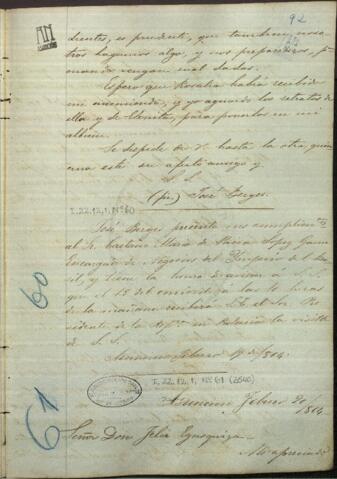 92
dientes, es prudente, que tambien noso
tros hagamos algo, y nos preparemos, p.ª
cuando vengan mal dadas.
Espero que Rosalia habrá recibido
mi encomienda, y yo aguardo los retratos de
ella y de Benita, para ponerlos en mi
album.
Se despide de V. hasta la otra, quien
una este su afectí amigo y
S. S.
(fu) José Berges
I. 22, 12, 1, Nº 60
José Berges presenta sus cumplim.tos
al Sr. Caetano Maria de Paiva Lopez Gama
Encargado de Negocios del Imperio del Bra
sil, y tiene la honra de avisar á S. S.
que el 12 del corriente á las 10 horas
de la mañana recibirá S. E. el Sor. Pre
sidente de la Rep.ca en Palacio la visita
de S. S.
Asuncion Febrero 19 de 1864.
I, 22, 12, 1, Nº 61 (2540)
Asuncion Febrero 20/864.
Señor Don Felix Egusquiza
Mi apreciado
60
61